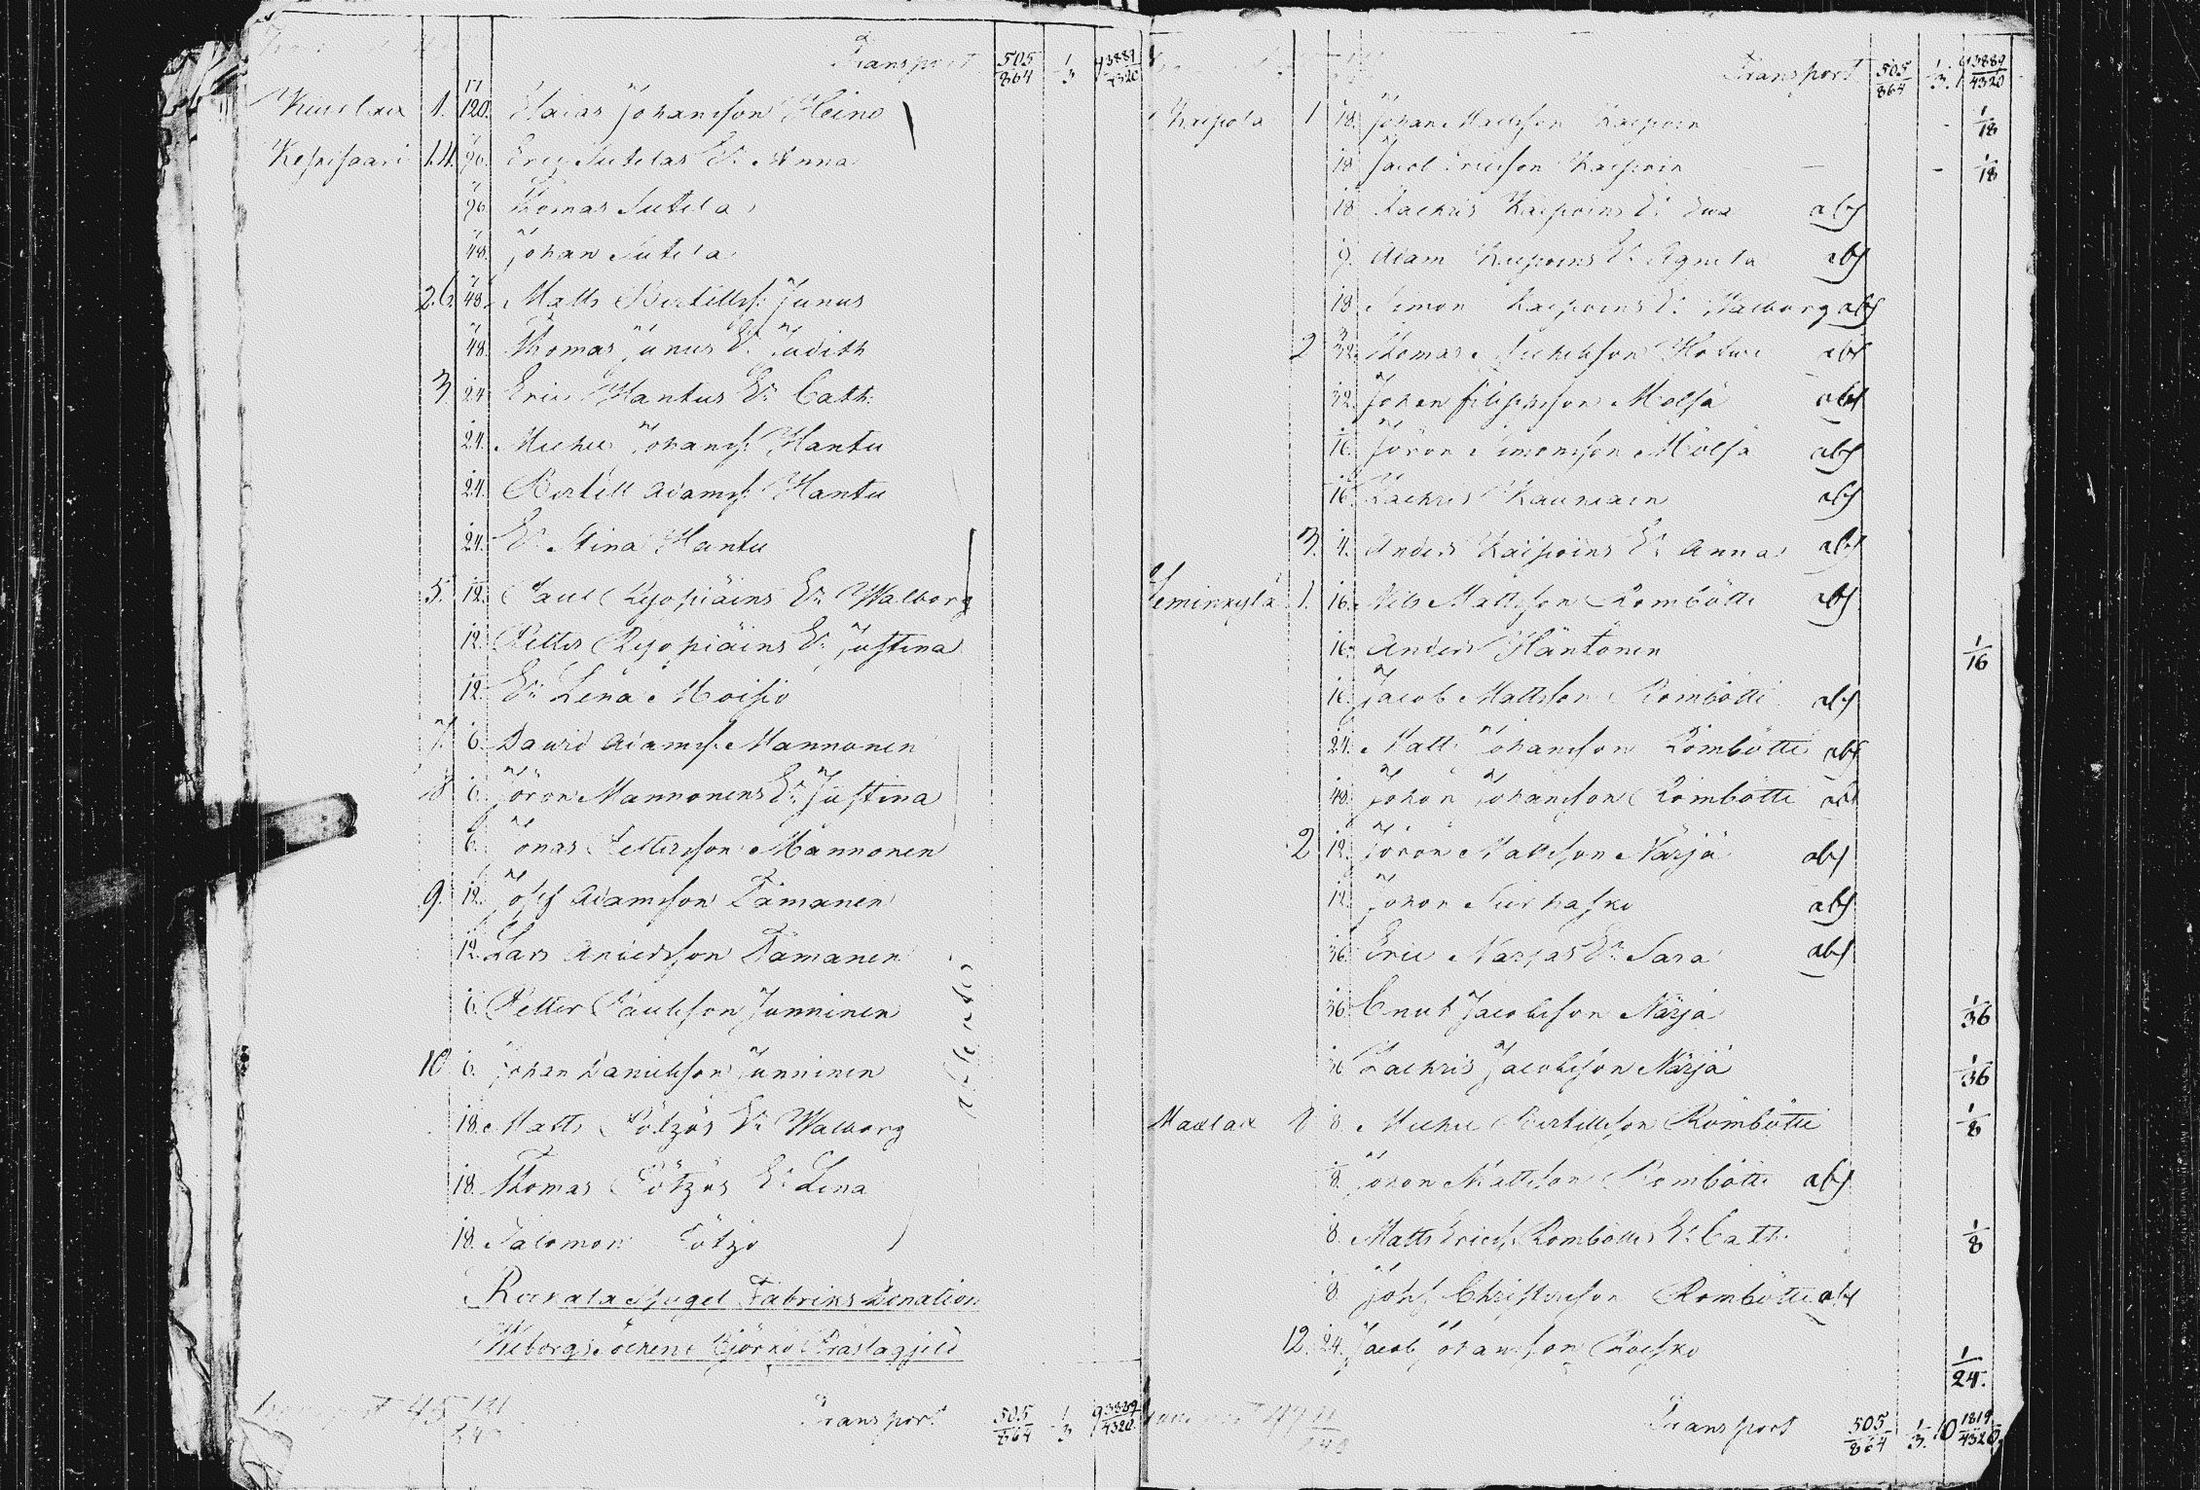 Transport 505/864 1/3 9 3889/4320
Kuurlax 1. 17/120. Esaias Johansson Heino
Kesrisaari 1.11. 7/96. Eric Sutelas E: Anna
7/96 Thomas Sutela
7/48. Johan Sutela
2.6. 7/48. Matts Bertillss: Junus
7/48. Thomas Junus E: Judith
3. 24 Eric Hantus E: Cath:
24. Michel Johanss: Hantu
24. Bertill Adamss: Hantu
24. E: Stina Hantu
5. 12. Paul Ryöpiäins E: Walborg
12. Petter Ryöpiäins E: Justina
12. E: Lena Moisio
7. 6. David Adamss: Mannonen
8 6. Jöran Mannonens E: Justina
6. Jonas Pettersson Mannonen
9. 12. Josef Adamsson Tämänen
12. Lars Andersson Tämänen
6. Petter Paulsson Junninen
10 6. Johan Danielsson Junninen
18. Matts Pötzös E: Walborg
18. Thomas Pötzös E: Lena
18. Salomon Pötzö
Rokala Spegel Fabriks Donation
Wiborgs Sockens Björkö Prästagjeld
Transport 505/864 1/3 9 3889/4320
Transport 505/864 1/3 9 3889/4320
Kaipola 1 18. Johan Mattsson Kaipoin 1/18
18 Jacob Ericsson Kaipoin 1/18
18 Zachris Kaipoins E: Eva abs
9. Adam Kaipoins E: Agneta abs
18 Simon Kaipoins E: Walborg abs
2 32. Thomas Michelsson Hotari abs
32. Johan Filipsson Mölsä abs
16. Jöran Simonsson Mölsä abs
16. Zachris Kauniain abs
3. 4. Anders Kaipoins E: Anna abs
Seminkylä 1. 16. Nils Mattsson Römbötti abs
16. Anders Häntönen 1/16
16. Jacob Mattsson Römbötti abs
24. Matts Johansson Römbötti abs
48. Johan Johansson Römbötti abs
2 12. Jöran Mattsson Närjä abs
12 Johan Suikasko abs
36. Eric Närjäs E: Sara abs
36 Cnut Jacobsson Närjä 1/36
36 Zachris Jacobsson Närjä 1/36
Maxlax 1 8 Michel Bertillsson Römbötti 1/8
8. Johan Mattsson Römbötti abs
8. Matts Ericss: Römböttis E: Cath: 1/8
8 Josef Christersson Römbötti abs
12. 24. Jacob Johansson Roisko 1/24.
Transport 505/864 1/3. 10 1819/4320.